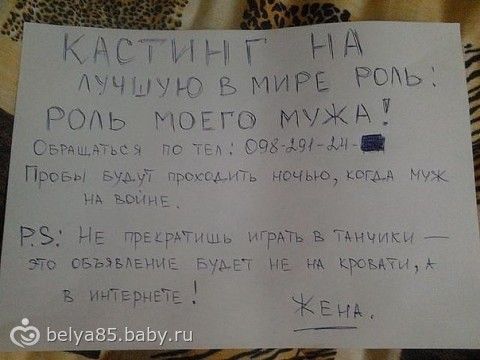 КАСТИНГ НА
ЛУЧШУЮ В МИРЕ РОЛЬ:
РОЛЬ МОЕГО МУЖА!
ОБРАЩАТЬСЯ ПО ТЕЛ: 098-291-24-
ПРОБЫ БУДУТ ПРОХОДИТЬ НОЧЬЮ, КОГДА МУЖ
НА ВОЙНЕ.
P.S: НЕ ПРЕКРАТИШЬ ИГРАТЬ В ТАНЧИКИ —
ЭТО ОБЪЯВЛЕНИЕ БУДЕТ НЕ НА КРОВАТИ, А
В ИНТЕРНЕТЕ!
ЖЕНА.
belya85.baby.ru